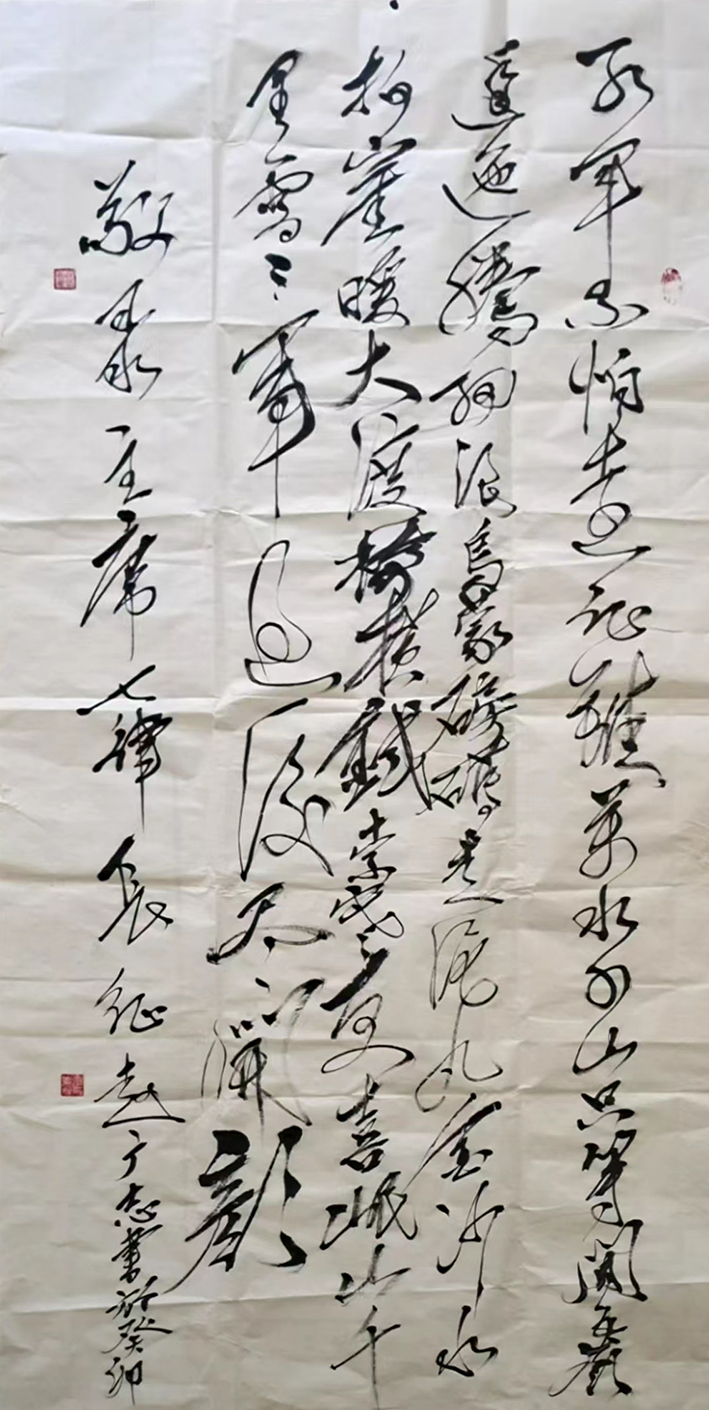 红军不怕远征难萬水千山只等闲五嶺
逶迤騰细浪烏蒙磅礴走泥丸金沙水
拍崖暖大渡橋横鐵索寒更喜岷山千
里雪三軍过後尽開颜
敬录主席七律長征赵广志書於癸卯